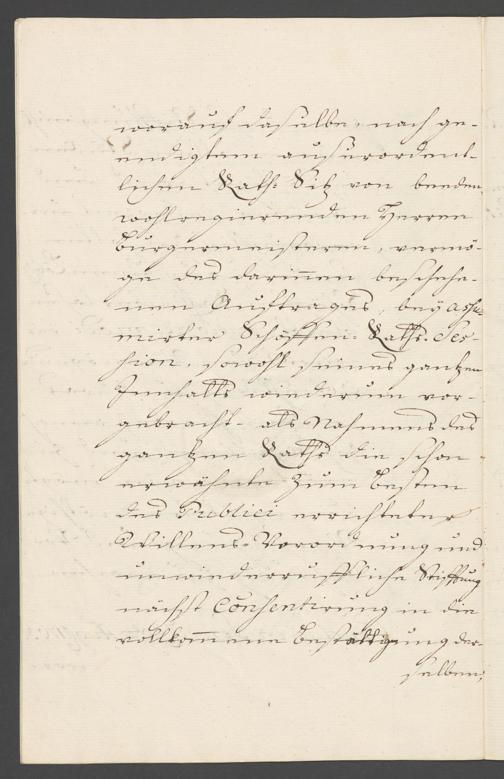 worauf daselbe, nach ge-
endigtem auserordent-
lichen Rath: Sitz von beeden
wohlregierenden Herren
Burgermeisteren, vermö-
ge des dariñen beschehe-
nen Auftrages, beÿ assu-
mirter Schöffen- Raths- Ses-
sion, sowohl seines gantzen
Innhalts wiederum vor-
gebracht- als Nahmens des
gantzen Raths die schon
erwähnte zum besten
des Publici errichtete
Willens-Verordnung und
unwiederruffliche Stifftung
nächst Consentirung in die
vollkom̃ene bestättigung der-
selben,